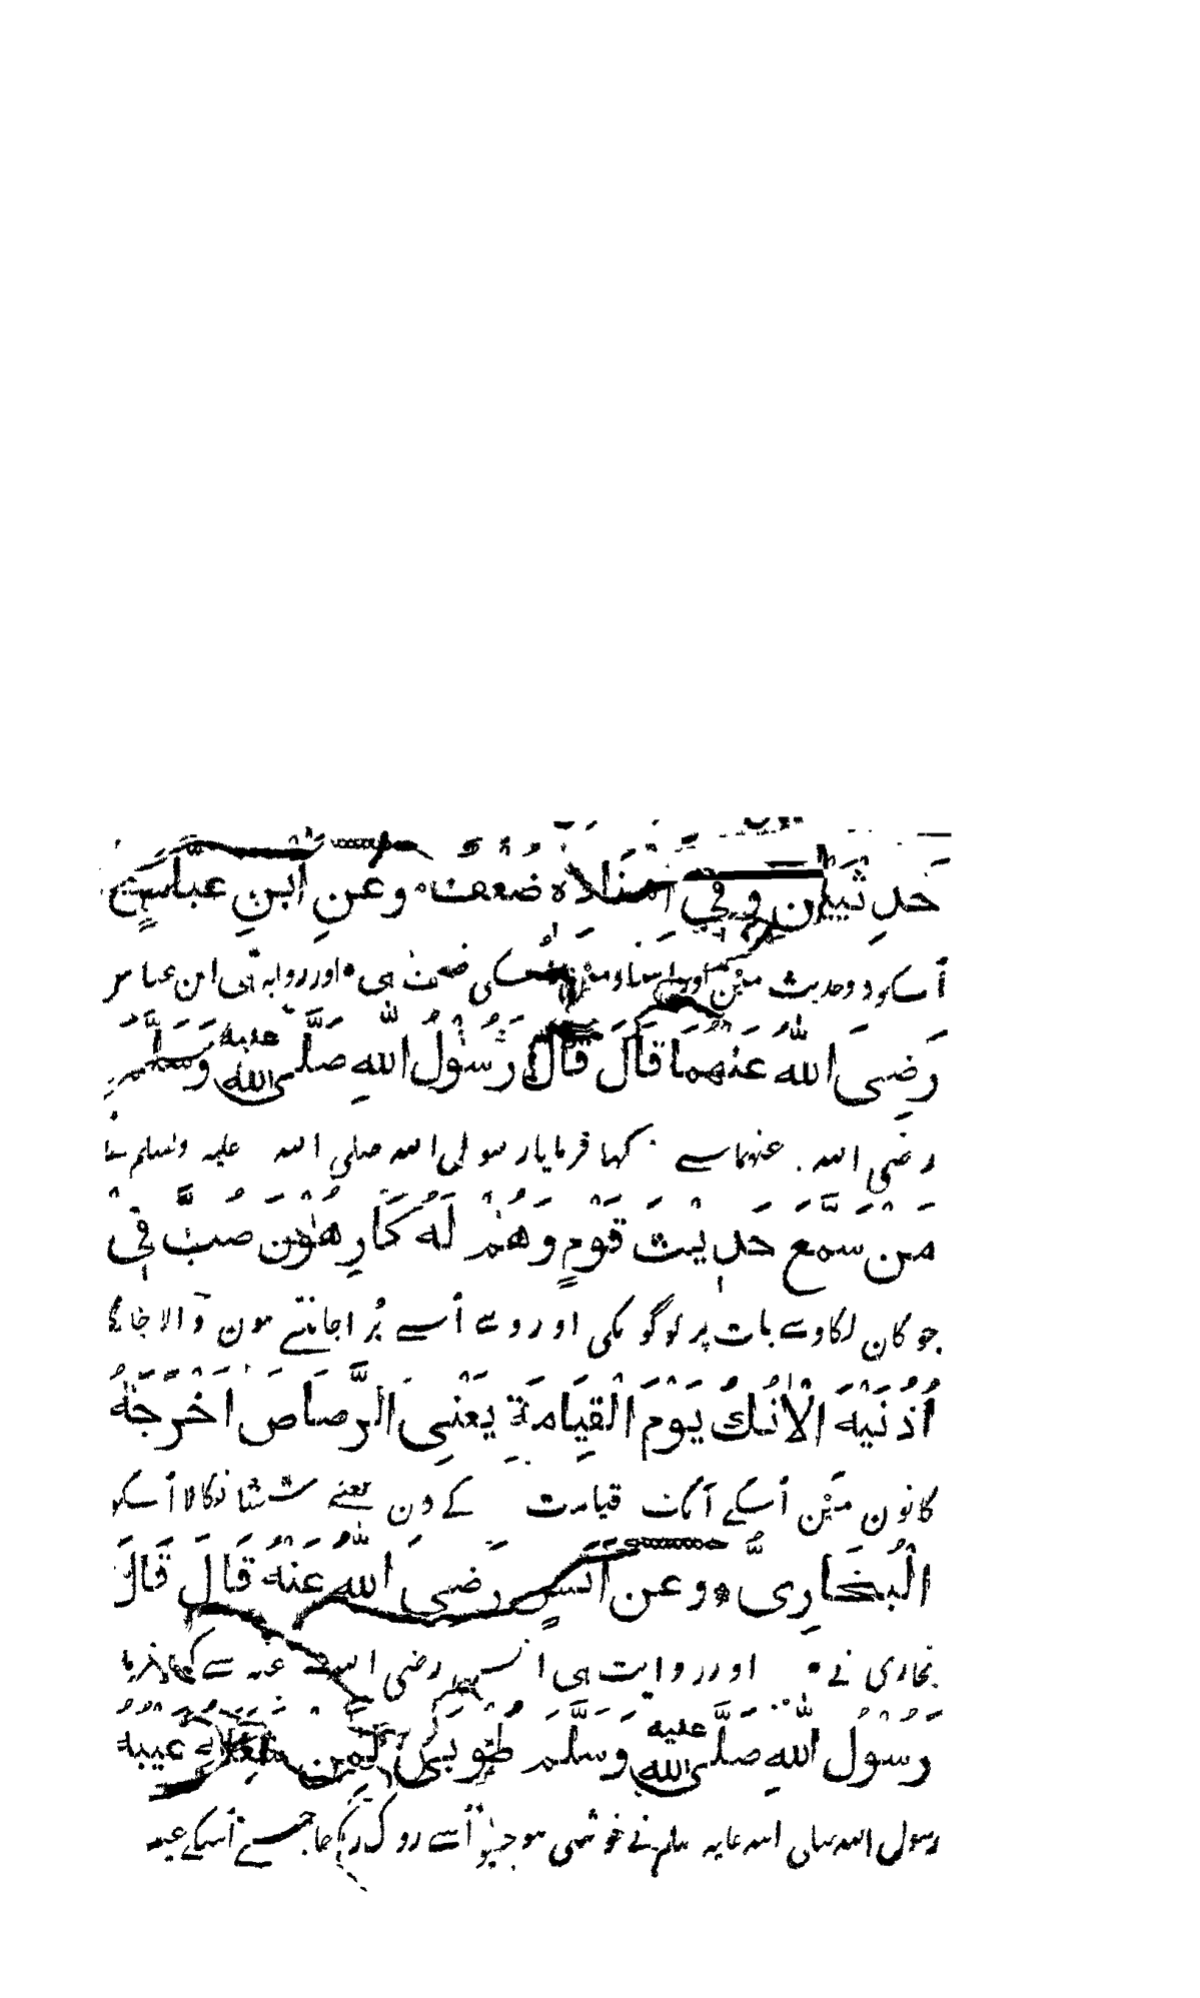 حَدِيْثَيْنِ وَفِي اِسْنَادِهٖ ضُعْفٌ ٭ وَعَنِ ابْنِ عَبَّاسٍ
اُسکو دو حدیث مین اور اسناد مین اُسکی ضعف ہی ٭ اور روایت ہی ابن عباس
رَضِیَ اللّٰهُ عَنْهُمَا قَالَ قَالَ رَسُوْلُ اللّٰهِ صَلَّی اللّٰهُ عَلَیْهِ وَسَلَّمَ
رضی اللہ عنہما سے کہا فرمایا رسول اللہ صلی اللہ علیہ وسلم نے
مَنْ سَمَّعَ حَدِيْثَ قَوْمٍ وَهُمْ لَهُ كَارِهُوْنَ صُبَّ فِيْ
جو کان لگاوے بات پر لوگونکی اور وے اُسے بُرا جانتے ہون ڈالا جائگا
اُذُنَيْهِ الْاٰنُكُ يَوْمَ الْقِيَامَةِ يَعْنِی الرَّصَاصَ اَخْرَجَهُ
کانون مین اُسکے آنک قیامت کے دن یعنے نکالا اُسکو
الْبُخَارِیُّ ٭ وَعَنْ اَنَسٍ رَضِیَ اللّٰهُ عَنْهُ قَالَ قَالَ
بخاری نے ٭ اور روایت ہی انس رضی اللہ عنہ سے کہا فرمایا
رَسُوْلُ اللّٰهِ صَلَّی اللّٰهُ عَلَیْهِ وَسَلَّمَ طُوْبٰی لِمَنْ شَغَلَهُ عَيْبُهُ
رسول اللہ صلی اللہ علیہ سلم نے خوشی ہوجیو اُسے روک رکھا جسے اُسکے عیب